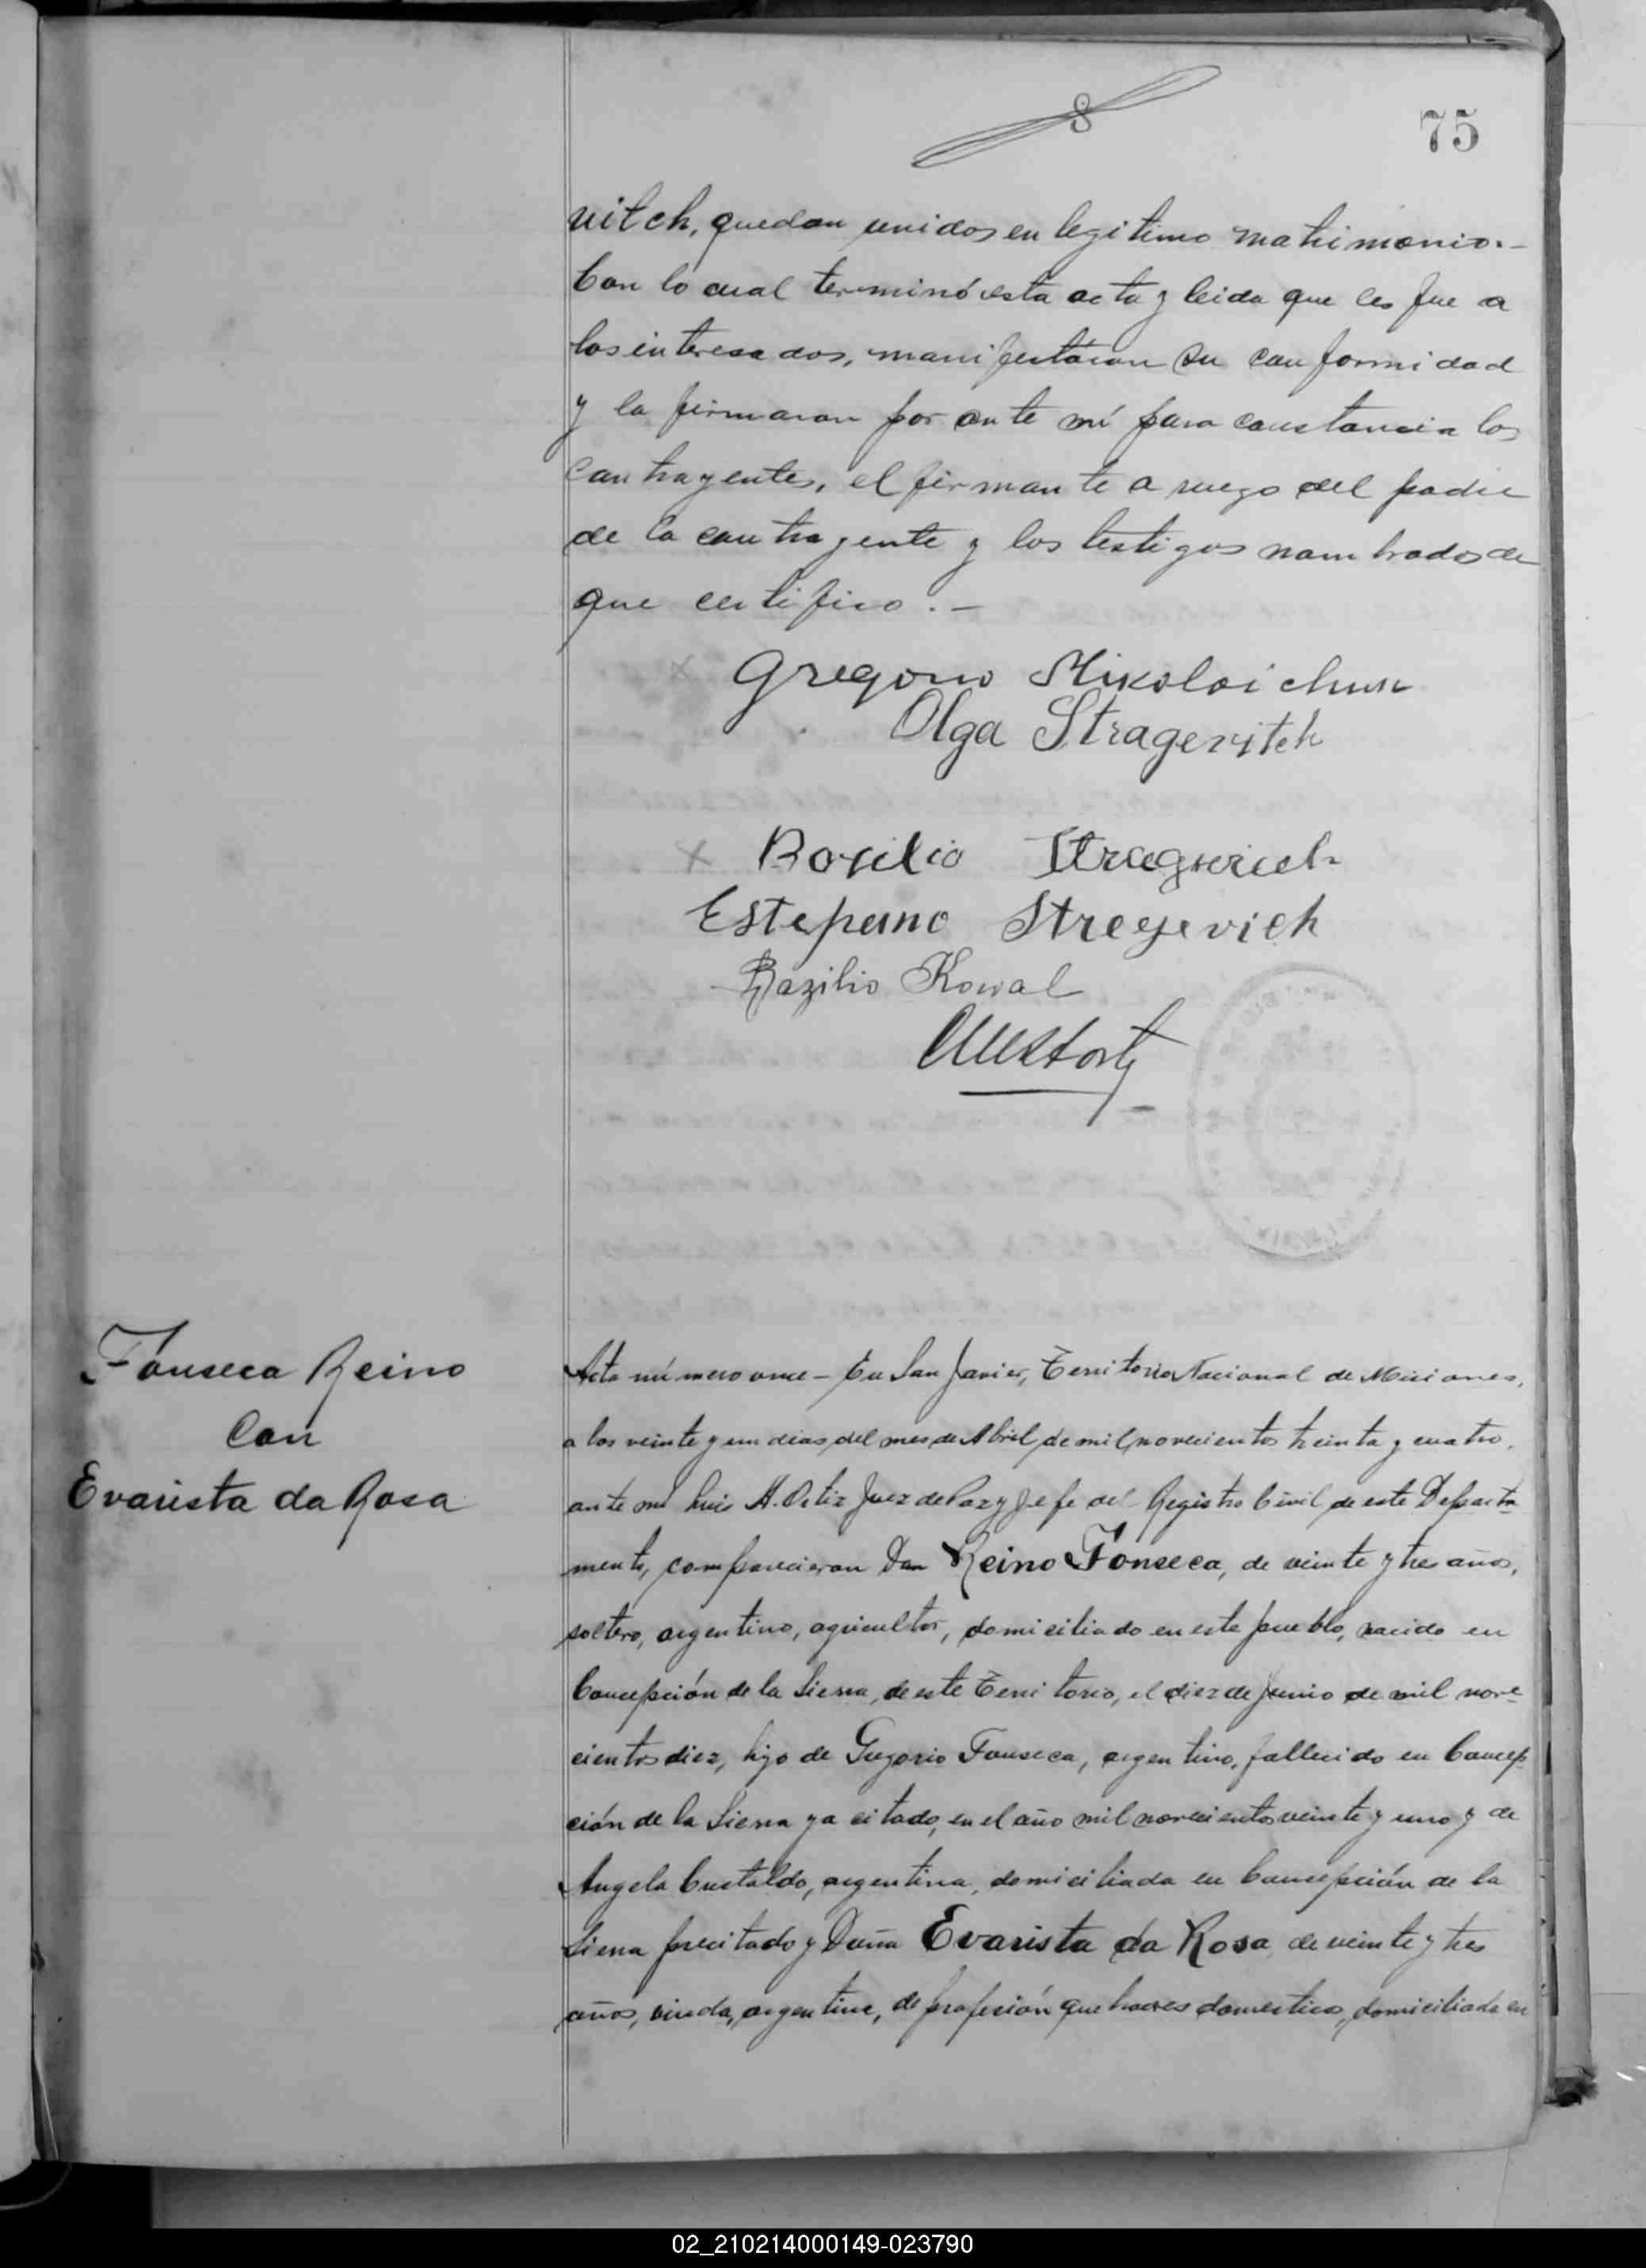 8
75
vitch, quedan unidos en legitimo matrimonio.-
Con lo cual terminó esta acta y leida que les fue a
los interesados, manifestaron su conformidad
y la firmaron por ante mí para constancia los
contrayentes, el firmante a ruego del padre
de la contrayente y los testigos nombrados de
que certifico.-
Gregorio Mikolaichuk
Olga Stragevitch
Basilio
Estepano Stregevich
Bazilio Kowal
Fonseca Reino
Con
Evarista da Rosa
Acta número once - En San Javier, Territorio Nacional de Misiones,
a los veinte y un dias del mes de Abril de mil novecientos treinta y cuatro,
ante mí Luis A. Ortiz Juez de Paz y Jefe del Registro Civil de este Departa-
mento, comparecieron Don Reino Fonseca, de veinte y tres años,
soltero, argentino, agricultor, domiciliado en este pueblo, nacido en
Concepción de la Sierra, de este Territorio, el diez de Junio de mil nove-
cientos diez, hijo de Gregorio Fonseca, argentino, fallecido en Concep-
ción de la Sierra ya citado, en el año mil novecientos veinte y uno y de
Angela Custaldo, argentina, domiciliada en Concepción de la
Sierra precitado y Doña Evarista da Rosa, de veinte y tres
años, viuda, argentina, de profesión quehaceres domesticos, domiciliada en
02_210214000149-023790